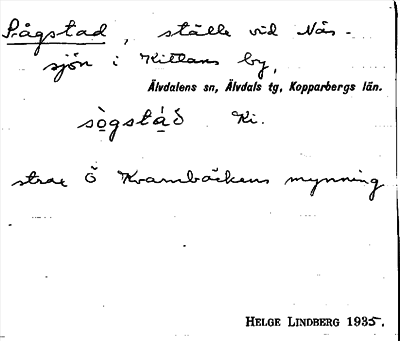 Sågstad, ställe vid Nås-
sjön i Kittans by,
Älvdalens sn, Älvdals tg, Kopparbergs län.
sògstáð Ki.
strax Ö Krambäckens mynning
HELGE LINDBERG 1935.